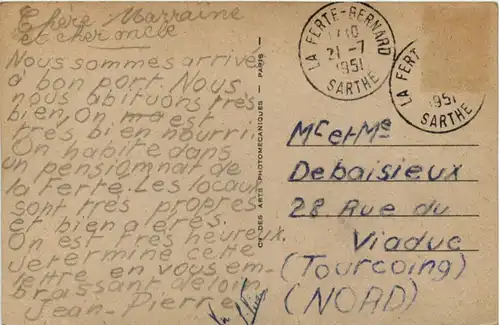 Chère Marraine
et cher oncle
Nous sommes arrivé
à bon port. Nous
nous abituons très
bien, On est
très bien nourri.
On habite dans
un pensiomnat de
la Ferté. Les locau
sont très propres
et bien aérés.
On est très heureux.
Je termine cette
lettre en vous em-
brassant de loin
Jean-Pierre
CIE DES ARTS PHOTOMECANIQUES — PARIS —
LA FERTE-BERNARD
21-7
1951
SARTHE
LA FERT
1951
SARTHE
Mr et Me
Debaisieux
28 Rue du
Viaduc
(Tourcoing)
(NORD)